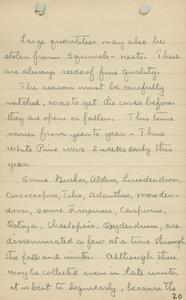 Large quantities may also be
stolen from Squirrels-nests. These
are always seeds of fine quality.
The season must be carefully
watched, so as to get the cones before
they are open or fallen. This time
varies from year to year - Thus
White Pine was 2 weeks early this
year.
Some Birches, Alders, Liriodendron,
Cercocarpus, Tilia, Ailanthus,
some Fraxinus, Carpinus,
Ostrya, Oxydendrum, are
disseminated a few at a time through
the fall and winter. Although these
may be collected even in late winter
it is best to begin early, because the